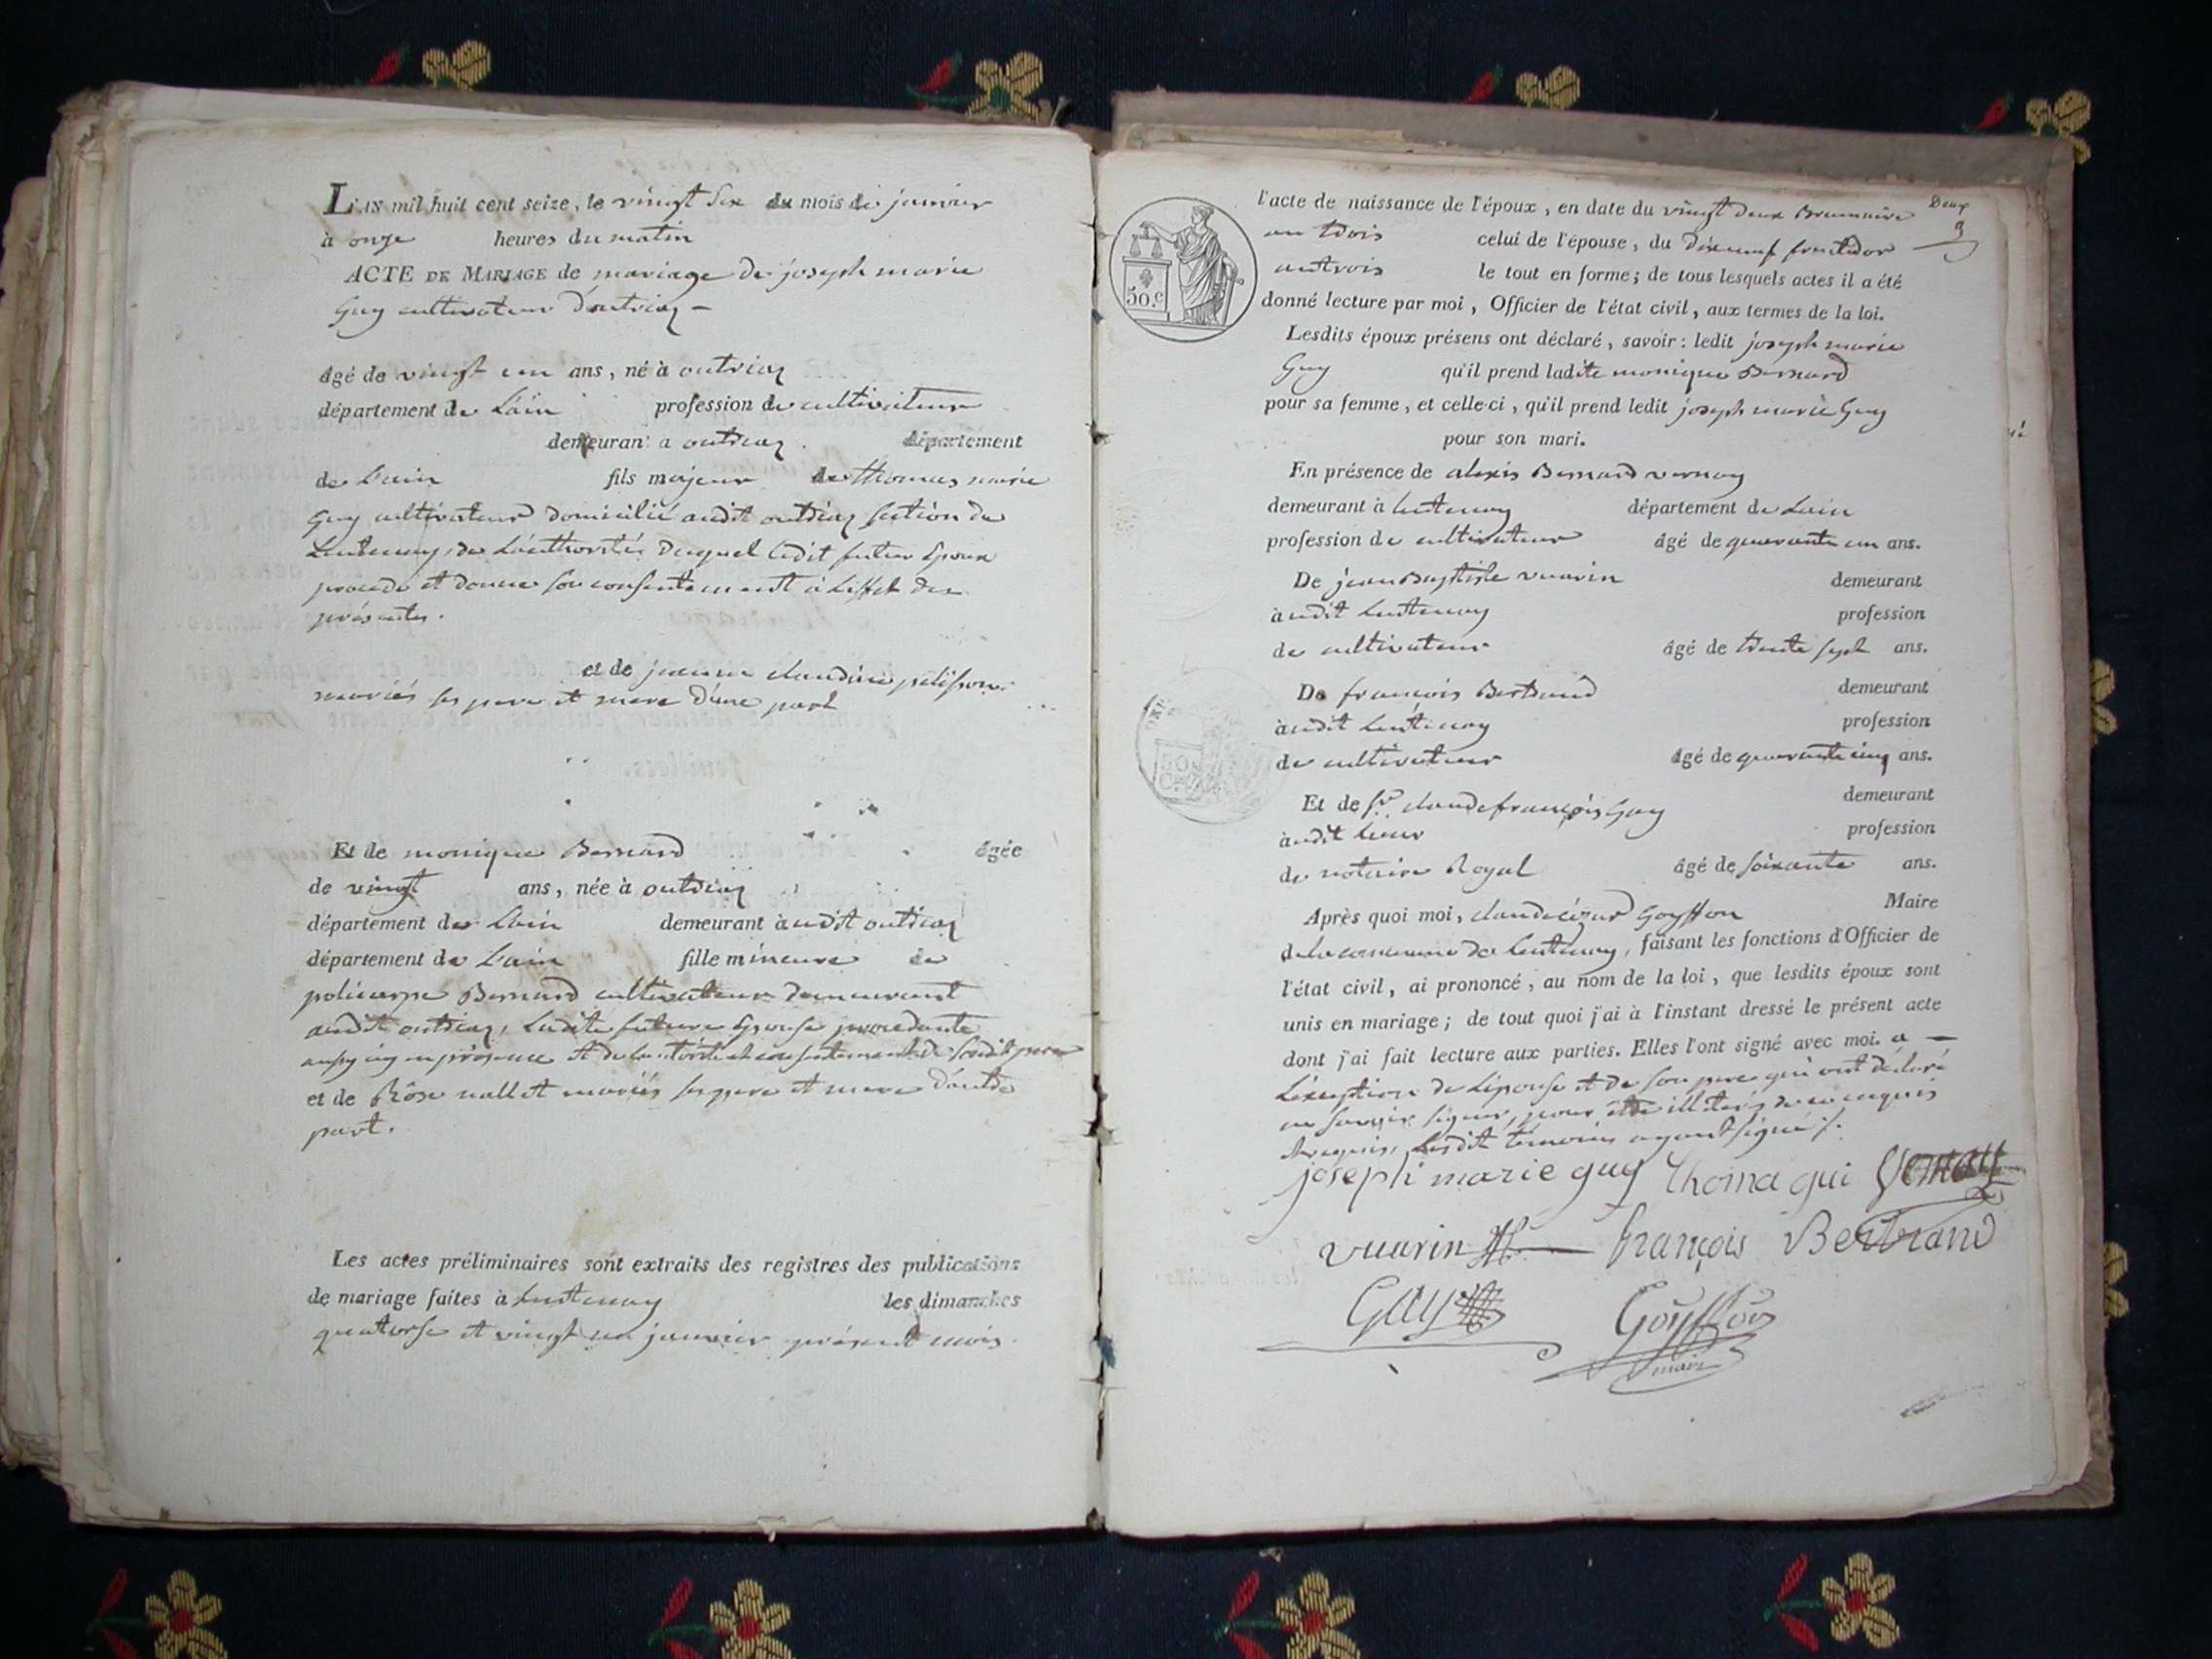 L'AN mil huit cent seize, le vingt six du mois de janvier
à onze heures du matin
ACTE DE MARIAGE de mariage de joseph marie
Guy cultivateur d'outriaz
âgé de vingt un ans, né à outriaz
département de L'ain profession de cultivateur
demeurant à outriaz département
de L'ain fils majeur de thomas marie
Guy cultivateur domicilié audit outriaz section de
Lantenay, de L'authorité duquel ledit futur Epoux
procede et donne son consentement à L'effet des
présentes.
et de jeanne claudine pelisson
mariés ses pere et mere d'une part
Et de monique Bernard âgée
de vingt ans, née à outriaz
département de L'ain demeurant à audit outriaz
département de L'ain fille mineure de
policarpe Bernard cultivateur demeurant
audit outriaz, Ladite future Epouse procedante
en présence et de L'autorité et consentement de sondit pere
et de Rôse nallet mariés ses pere et mere d'autre
part.
Les actes préliminaires sont extraits des registres des publications
de mariage faites à Lantenay les dimanches
quatorse et vingt un janvier présent mois.
Deux
l'acte de naissance de l'époux, en date du vingt deux Brumaire
an trois celui de l'épouse, du dixneuf fructidor
an trois le tout en forme; de tous lesquels actes il a été
50.c
donné lecture par moi, Officier de l'état civil, aux termes de la loi.
Lesdits époux présens ont déclaré, savoir: ledit joseph marie
Guy qu'il prend ladite monique Bernard
pour sa femme, et celle-ci, qu'il prend ledit joseph marie Guy
pour son mari.
En présence de alexis Bernard vernay
demeurant à Lantenay département de Lain
profession de cultivateur âgé de quarante un ans.
De jean Baptiste vuarin demeurant
à audit Lantenay profession
de cultivateur âgé de trente sept ans.
De françois Bertrand demeurant
à audit Lantenay profession
de cultivateur âgé de quarante cinq ans.
Et de Sr. claude françois Gay demeurant
à audit Lieu profession
de notaire Royal âgé de soixante ans.
Après quoi moi, claude césar Goyffon Maire
de la commune de Lantenay, faisant les fonctions d'Officier de
l'état civil, ai prononcé, au nom de la loi, que lesdits époux sont
unis en mariage; de tout quoi j'ai à l'instant dressé le présent acte
dont j'ai fait lecture aux parties. Elles l'ont signé avec moi. a
L'exception de L'épouse et de son pere qui ont déclaré
ne savoir signer, pour être illiterés de ce enquis
et requis, Lesdit témoins ayant signé.
joseph marie guy thoma gui Vernay
vuarin françois Bertrand
Gay Goyffon
maire